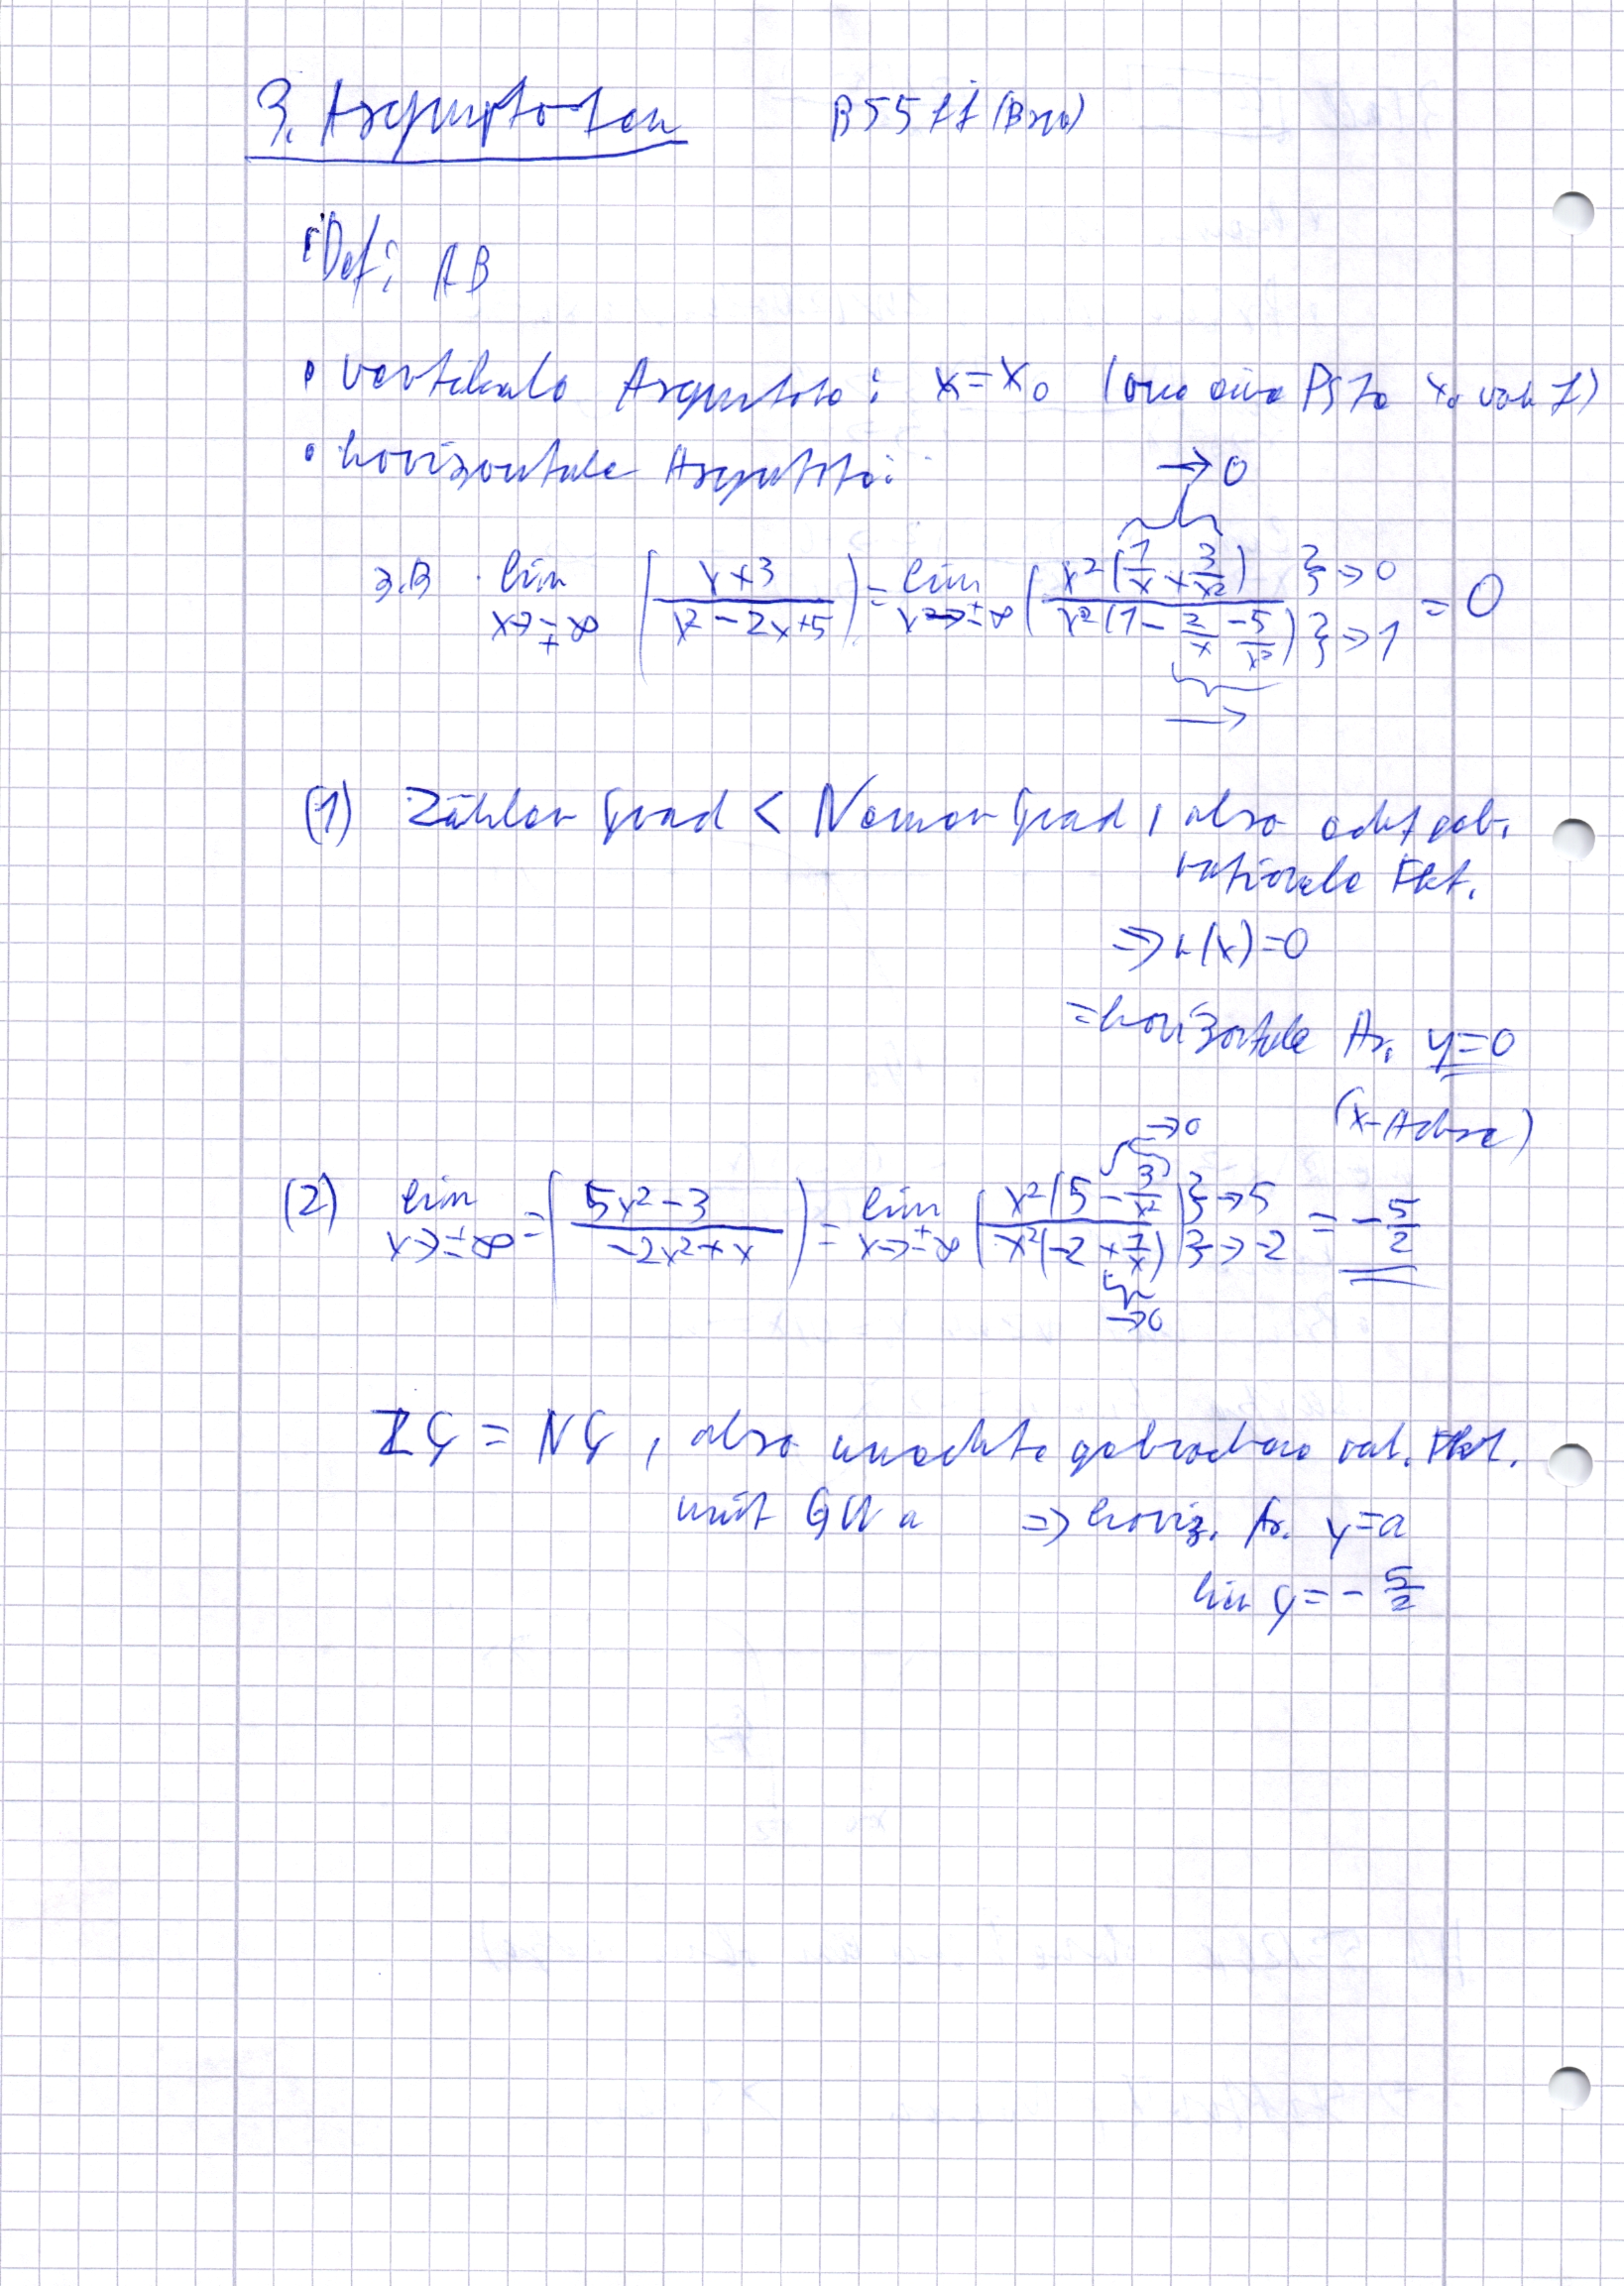 3. Asymptoten B55ff (Bsp)
Def: AB
• vertikale Asymptote: x = x₀ (eine PSte x₀ von f)
• horizontale Asymptote:
→ 0
z.B. lim x→±∞ ( (x+3) / (x² - 2x + 5) ) = lim x→±∞ ( x²(1/x + 3/x²) } → 0 / x²(1 - 2/x - 5/x²) } → 1 = 0
→
(1) Zähler Grad < Nenner Grad, also echt geb.
rationale Fkt.
⇒ h(x) = 0
= horizontale As. y = 0
(x-Achse)
→ 0
(2) lim x→±∞ = ( (5x² - 3) / (-2x² + x) ) = lim x→±∞ ( x²(5 - 3/x²) } → 5 / x²(-2 + 1/x) } → -2 = -5/2
→ 0
ZG = NG, also unechte gebrochene rat. Fkt.
mit GW a ⇒ horiz. As. y = a
hier y = - 5/2